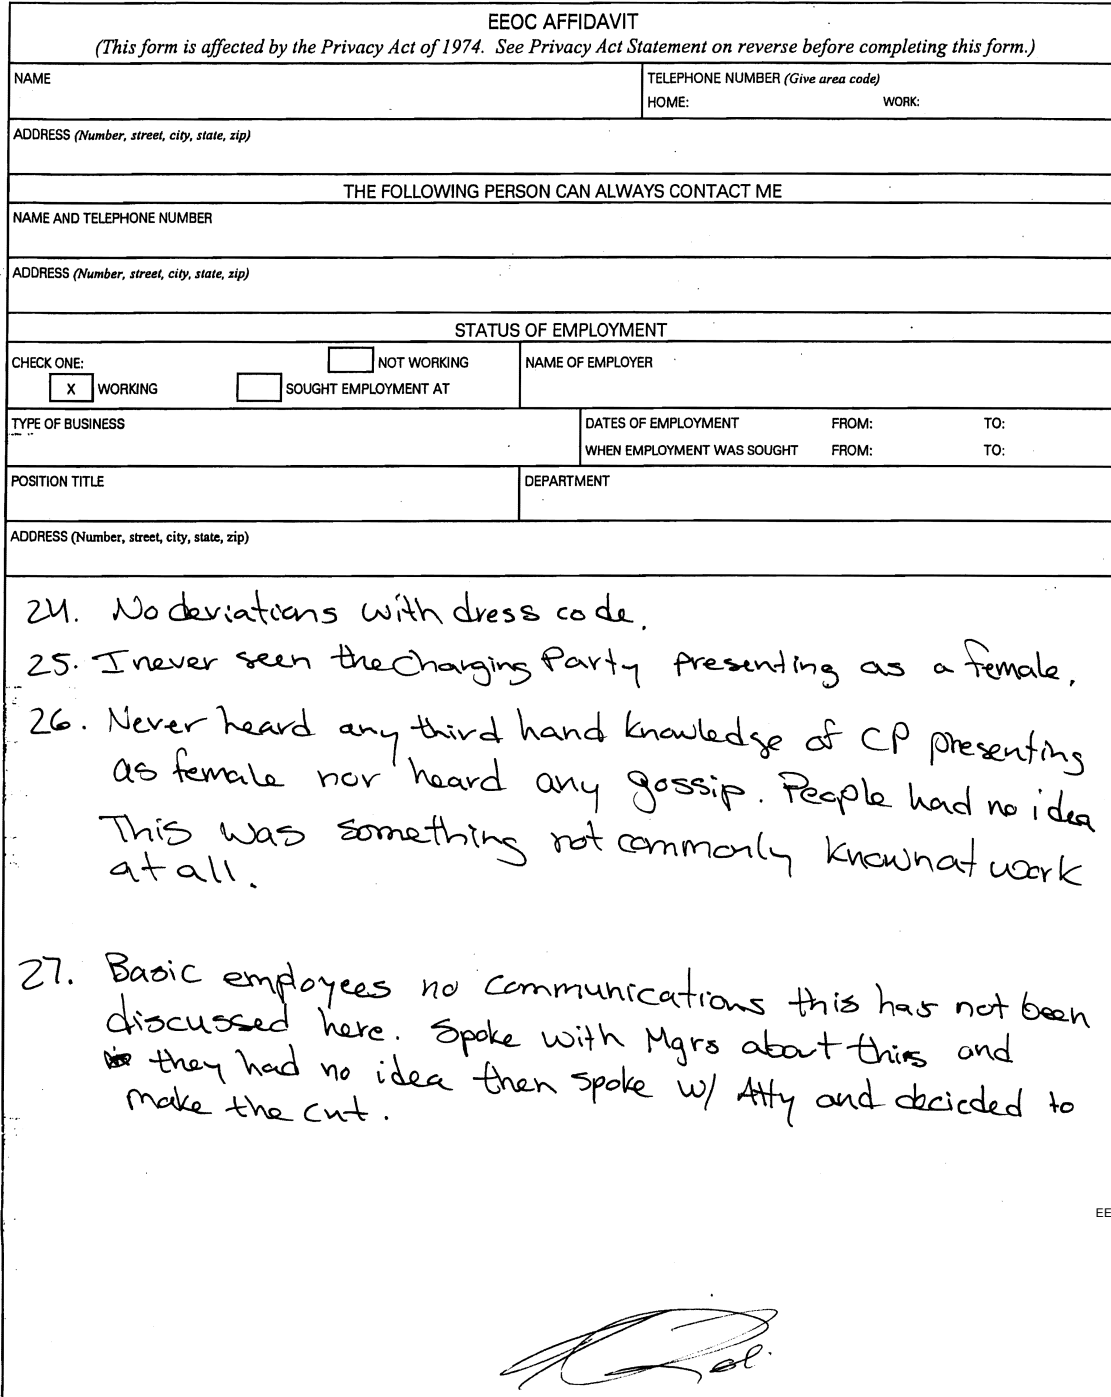 EEOC AFFIDAVIT
(This form is affected by the Privacy Act of 1974. See Privacy Act Statement on reverse before completing this form.)
NAME
TELEPHONE NUMBER (Give area code)
HOME: WORK:
ADDRESS (Number, street, city, state, zip)
THE FOLLOWING PERSON CAN ALWAYS CONTACT ME
NAME AND TELEPHONE NUMBER
ADDRESS (Number, street, city, state, zip)
STATUS OF EMPLOYMENT
CHECK ONE: NOT WORKING
X WORKING SOUGHT EMPLOYMENT AT
NAME OF EMPLOYER
TYPE OF BUSINESS
DATES OF EMPLOYMENT FROM: TO:
WHEN EMPLOYMENT WAS SOUGHT FROM: TO:
POSITION TITLE
DEPARTMENT
ADDRESS (Number, street, city, state, zip)
24. No deviations with dress code.
25. I never seen the Charging Party presenting as a female.
26. Never heard any third hand knowledge of CP presenting
as female nor heard any gossip. People had no idea
This was something not commonly known at work
at all.
27. Basic employees no communications this has not been
discussed here. Spoke with Mgrs about this and
they had no idea then spoke w/ Atty and decieded to
make the cut.
EE